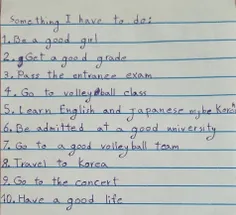 Something I have to do:
1. Be a good girl
2. Get a good grade
3. Pass the entrance exam
4. Go to volleyball class
5. Learn English and japanese mybe Kore
6. Be admitted at a good university
7. Go to a good volleyball team
8. Travel to korea
9. Go to the concert
10. Have a good life